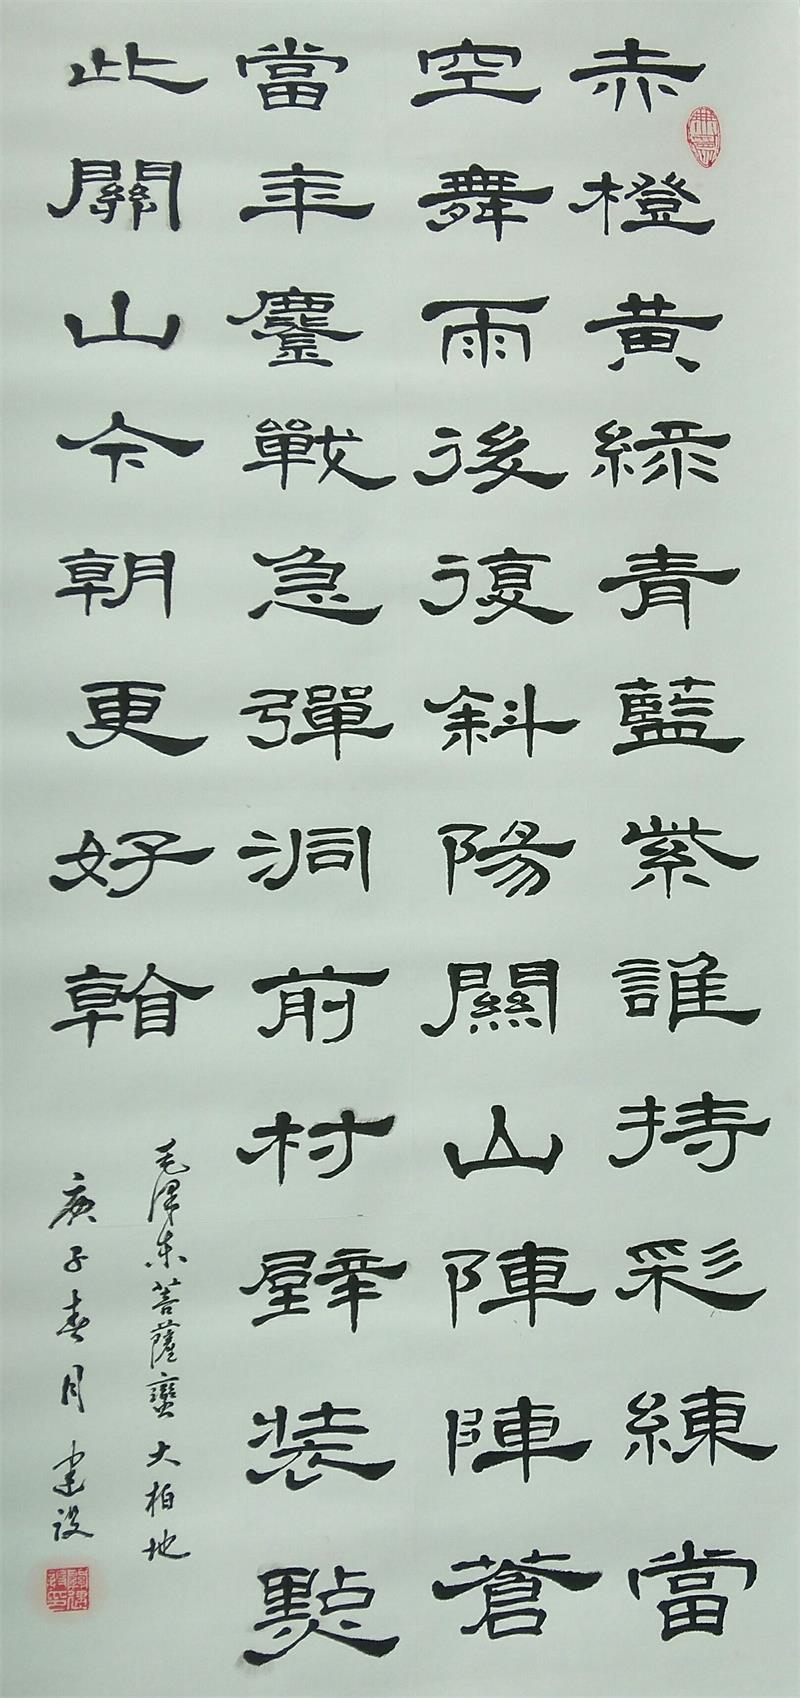 赤橙黃綠青藍紫誰持彩練當
空舞雨後復斜陽關山陣陣蒼
當年鏖戰急彈洞前村壁裝點
此關山今朝更好看
毛澤東菩薩蠻大柏地
庚子春月建設